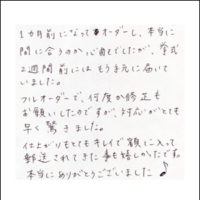 1ヵ月前になってオーダーし、本当に
間に合うのか心配でしたが、挙式
2週間前にはもう手元に届いて
いました。
フルオーダーで、何度か修正も
お願いしたのですが、対応がとても
早く驚きました。
仕上がりもとてもキレイで額に入って
郵送されてきた事も嬉しかったです。
本当にありがとうございました♪